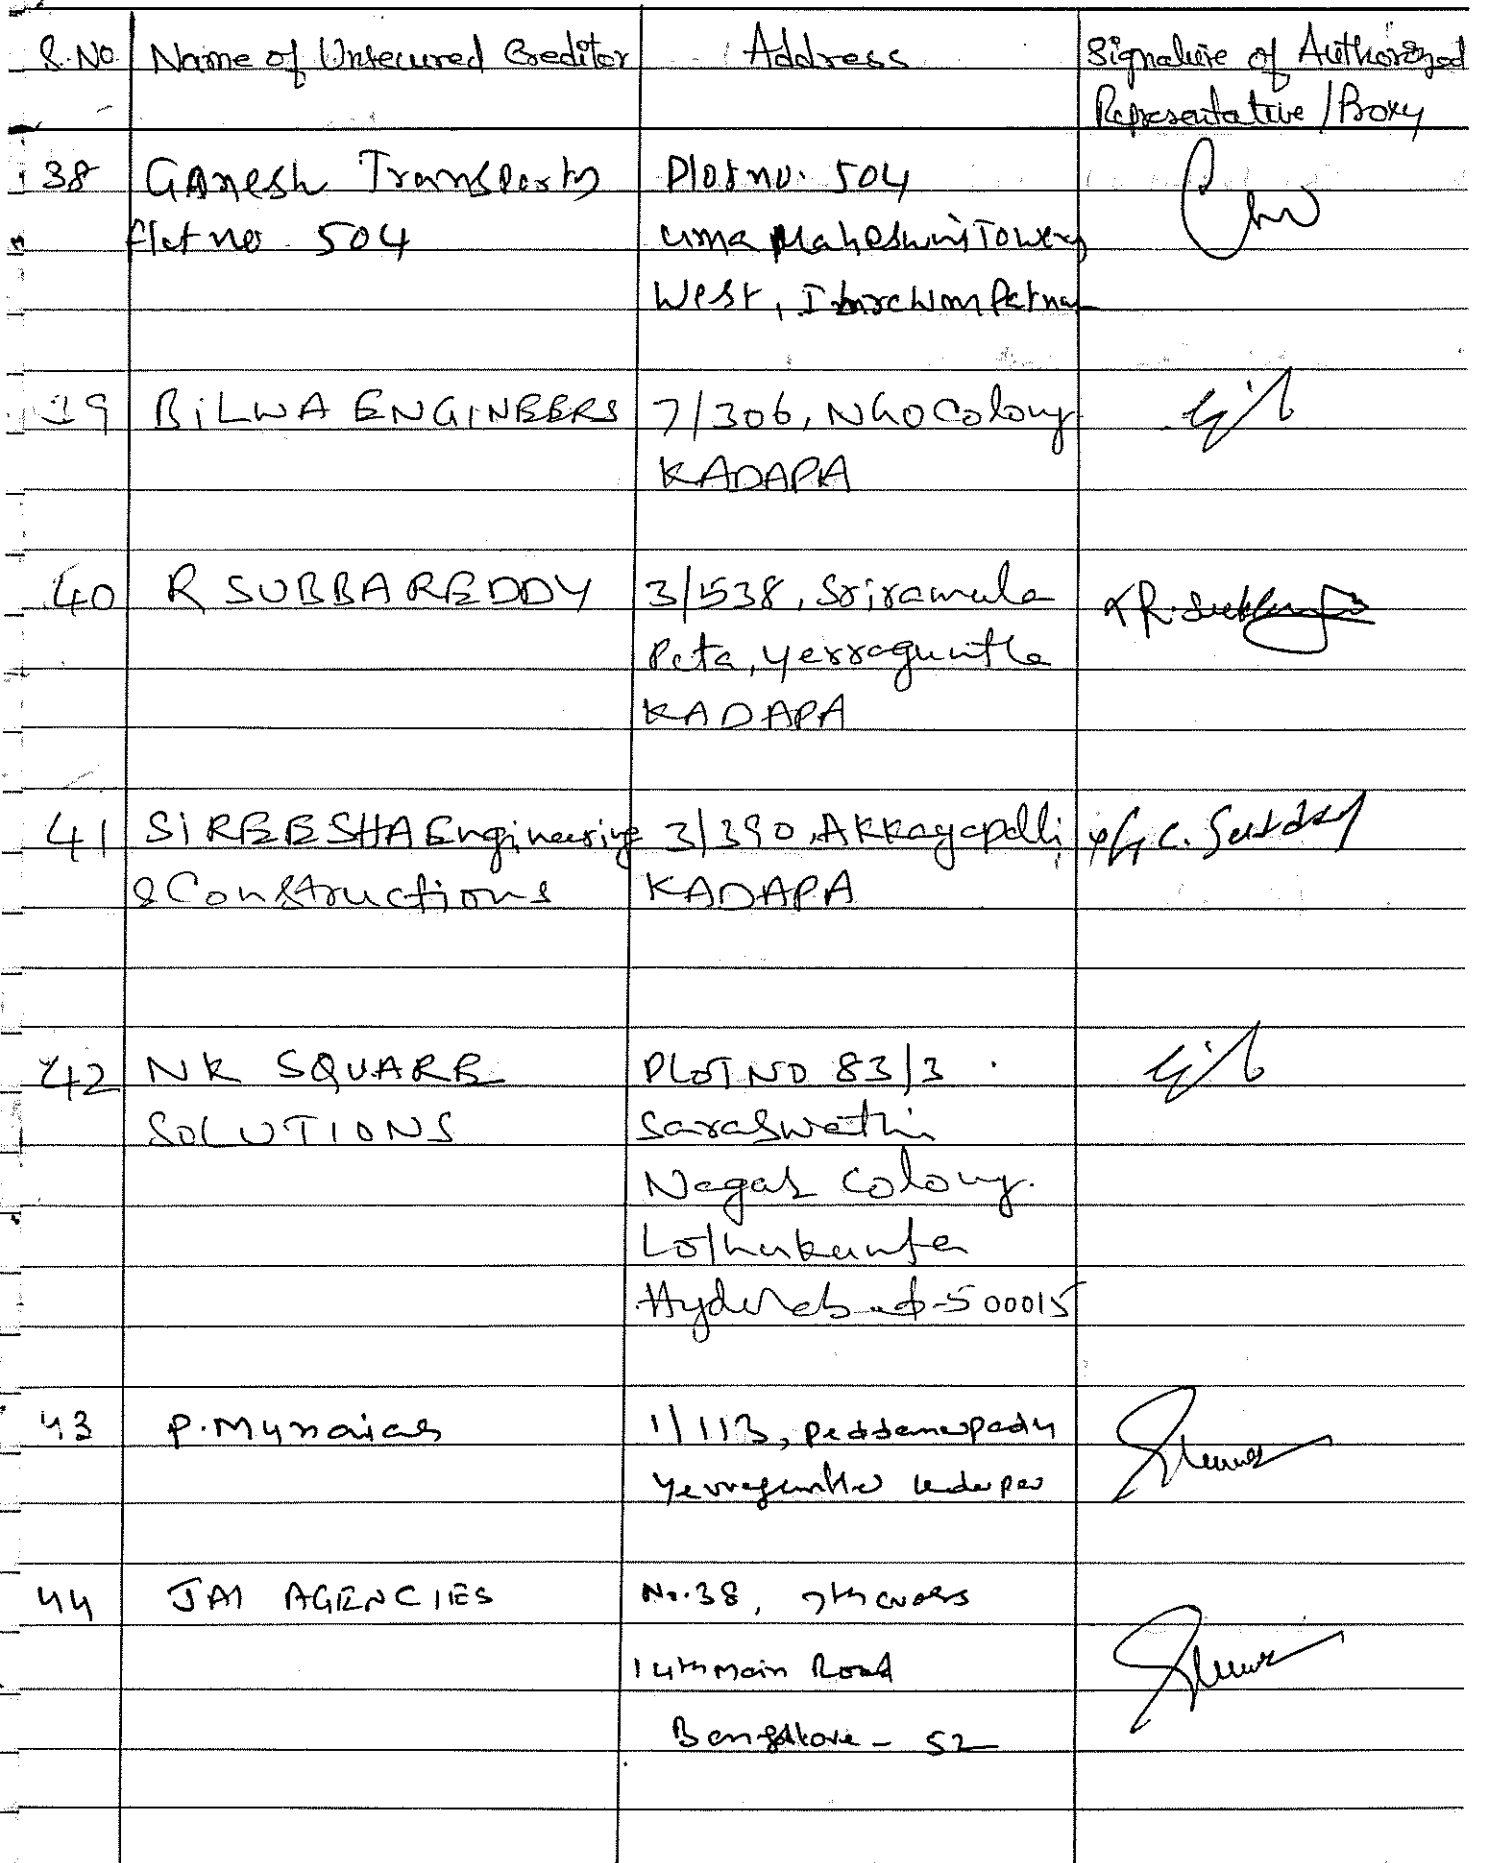 S.No Name of Unsecured Creditor Address Signature of Authorized
Representative / Proxy
38 Ganesh Transports Plot no. 504
flat no 504 uma Maheshwri Towers
West,
39 BILWA ENGINEERS 7/306, NGO Colony
KADAPA
40 R SUBBA REDDY 3/538, Sriramula
Peta, yerraguntla
KADAPA
41 SIREESHA Engineering 3/390, Akkayapalli
& Constructions KADAPA
42 NK SQUARE PLOT NO 83/3
SOLUTIONS Saraswathi
Nagar Colony.
Lothukunta
Hyderabad-500015
43 P. Mynaiah 1/113,
Yerraguntla Kadapa
44 JAI AGENCIES No.38, 7th cross
14th main Road
Bangalore - 52